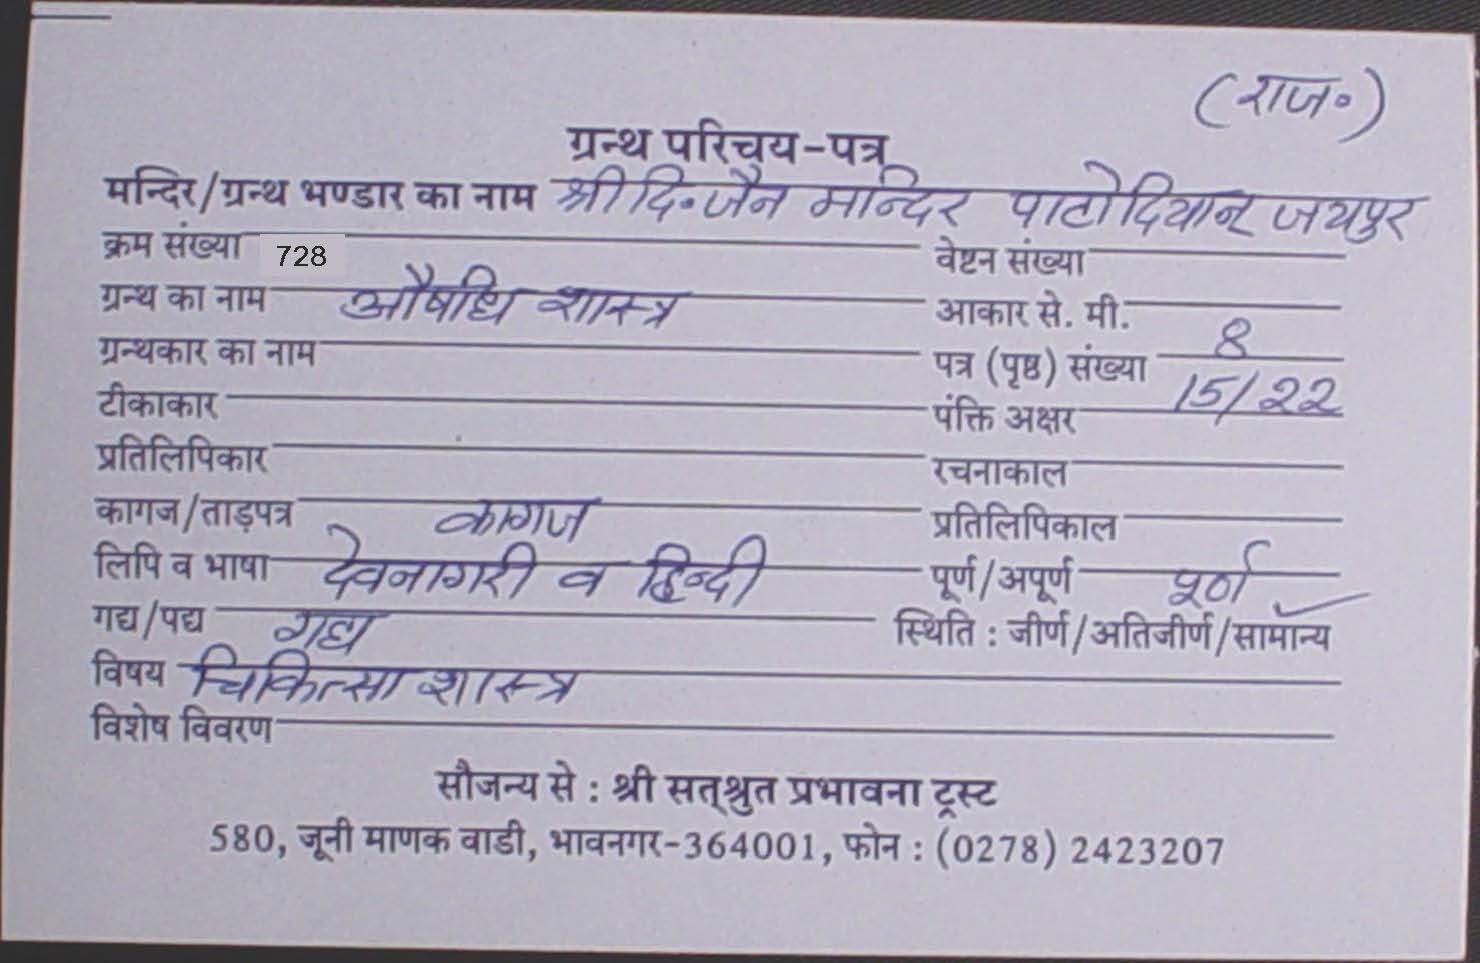 (राज॰)
ग्रन्थ परिचय-पत्र
मन्दिर/ग्रन्थ भण्डार का नाम श्री दि॰ जैन मन्दिर पाटोदियान् जयपुर
क्रम संख्या 728 वेष्टन संख्या
ग्रन्थ का नाम औषधि शास्त्र आकार से. मी.
ग्रन्थकार का नाम पत्र (पृष्ठ) संख्या 8
टीकाकार पंक्ति अक्षर 15/22
प्रतिलिपिकार रचनाकाल
कागज/ताड़पत्र कागज प्रतिलिपिकाल
लिपि व भाषा देवनागरी व हिन्दी पूर्ण/अपूर्ण पूर्ण
गद्य/पद्य गद्य स्थिति : जीर्ण/अतिजीर्ण/सामान्य
विषय चिकित्सा शास्त्र
विशेष विवरण
सौजन्य से : श्री सत्श्रुत प्रभावना ट्रस्ट
580, जूनी माणक वाडी, भावनगर-364001, फोन : (0278) 2423207